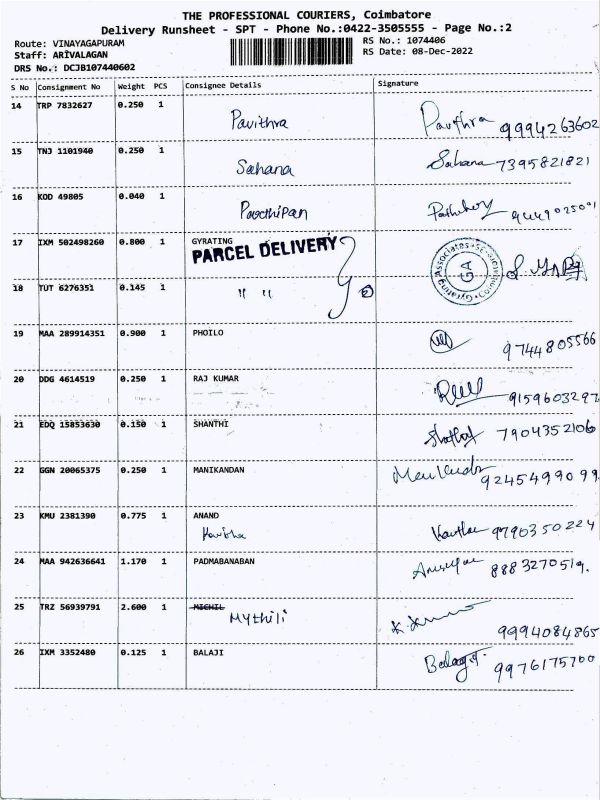 THE PROFESSIONAL COURIERS, Coimbatore
Delivery Runsheet - SPT - Phone No.:0422-3505555 - Page No.:2
Route: VINAYAGAPURAM RS No.: 1074406
Staff: ARIVALAGAN RS Date: 08-Dec-2022
DRS No.: DCJB107440602
S No Consignment No Weight PCS Consignee Details Signature
14 TRP 7832627 0.250 1 Pavithra Pavithra 9994263602
15 TNJ 1101940 0.250 1 Sahana Sahana 7395821821
16 KOD 49805 0.040 1 Paarthipan
17 IXM 502498260 0.800 1 GYRATING
PARCEL DELIVERY
18 TUT 6276351 0.145 1 " " 2
19 MAA 289914351 0.900 1 PHOILO 9744805566
20 DDG 4614519 0.250 1 RAJ KUMAR 9159603297
21 EDQ 15853630 0.150 1 SHANTHI 7904352106
22 GGN 20065375 0.250 1 MANIKANDAN Manikandan 9245499099
23 KMU 2381390 0.775 1 ANAND
Kavitha Kavitha 9790350224
24 MAA 942636641 1.170 1 PADMABANABAN 8883270519.
25 TRZ 56939791 2.600 1 MICHIL
Mythili 9994084865
26 IXM 3352480 0.125 1 BALAJI Balaji 9976175700